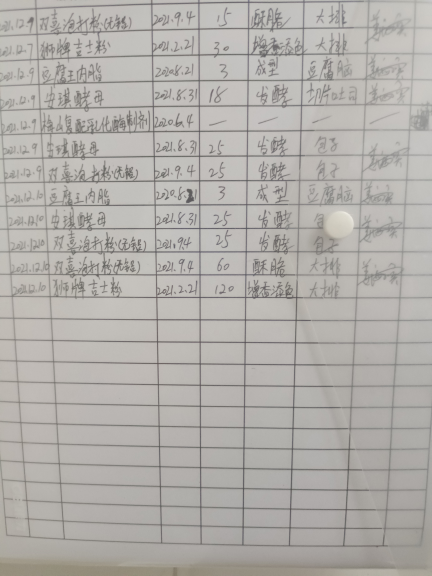 2021.12.9 双喜泡打粉(无铝) 2021.9.4 15 酥脆 大排
2021.12.7 狮牌吉士粉 2021.2.21 30 增香添色 大排
2021.12.9 豆腐王内脂 2020.8.21 3 成型 豆腐脑
2021.12.9 安琪酵母 2021.8.31 18 发酵 吐司
2021.12.9 复配乳化酶制剂 2020.6.4 — — —
2021.12.9 安琪酵母 2021.8.31 25 发酵 包子
2021.12.9 双喜泡打粉(无铝) 2021.9.4 25 发酵 包子
2021.12.10 豆腐王内脂 2020.8.21 3 成型 豆腐脑
2021.12.10 安琪酵母 2021.8.31 25 发酵 包
2021.12.10 双喜泡打粉(无铝) 2021.9.4 25 发酵 包子
2021.12.10 双喜泡打粉(无铝) 2021.9.4 60 酥脆 大排
2021.12.10 狮牌吉士粉 2021.2.21 120 增香添色 大排